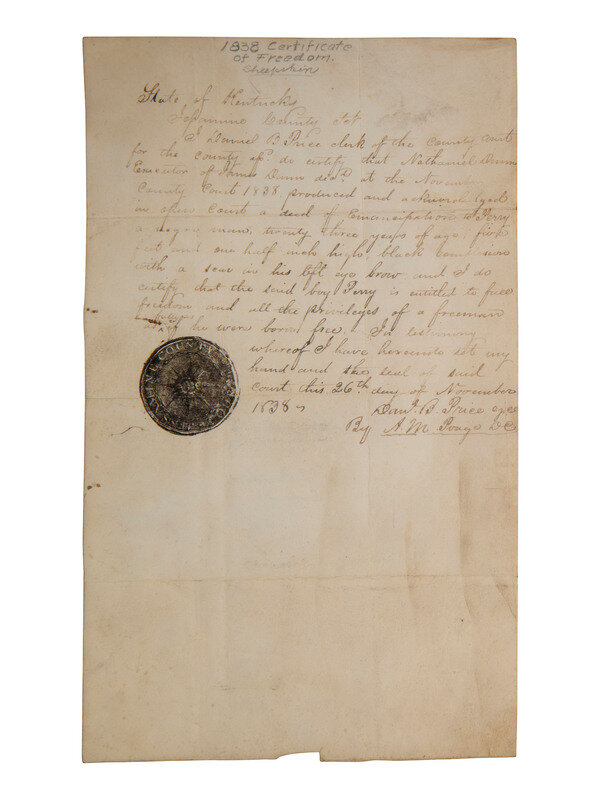 1838 Certificate
of Freedom.
Sheepskin
State of Kentucky
Jessamine County Sct
I Daniel B Price clerk of the County Court
for the County afs. do certify that Nathaniel Dunn
Executor of James Dunn decd. at the November
County Court 1838 produced and acknowledged
in open Court a deed of Emancipation to Perry
a negro man, twenty three years of age five
feet and one half inch high, black
with a scar in his left eye brow and I do
certify that the said boy Perry is entitled to free
freedom and all the privileges of a freeman
as if he were born free. In testimony
whereof I have hereunto set my
hand and the seal of said
court this 26th day of November
1838
Danl. B. Price
By A. M. Poage DC
COUNTY